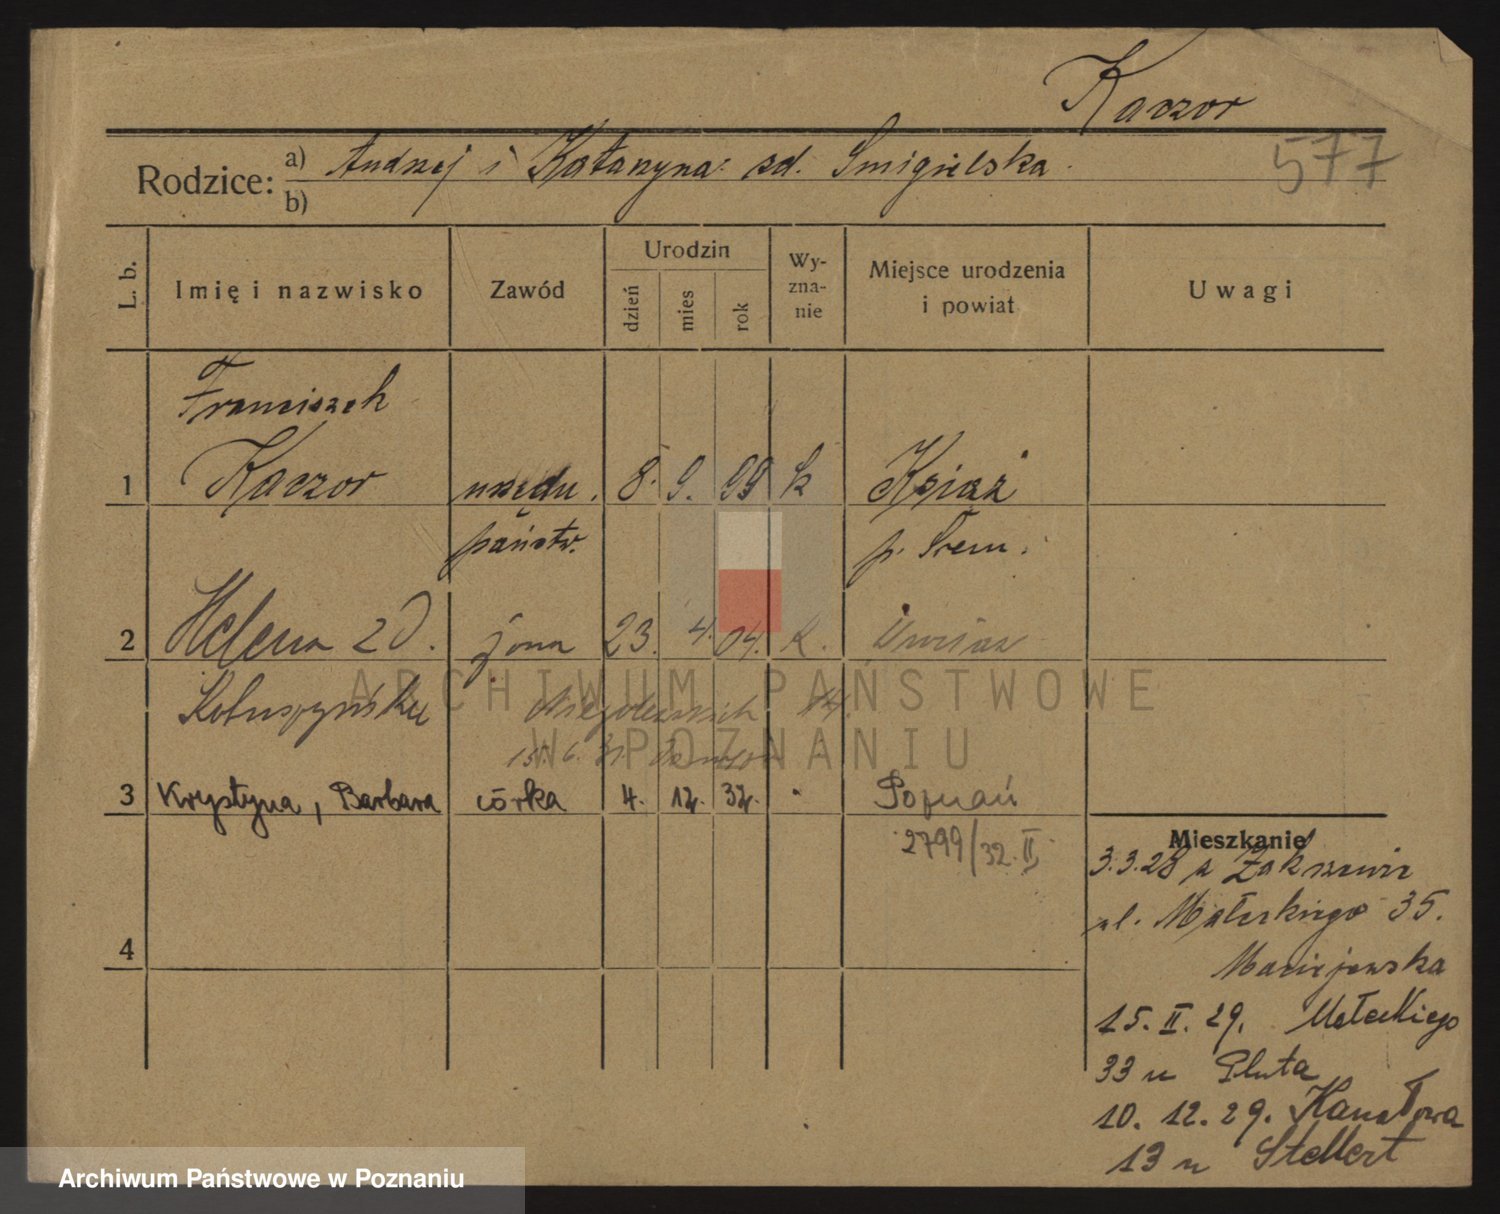 Kaczor
577
Rodzice: a) Andrzej i Katarzyna zd. Smigielska
b)
L. b. Imię i nazwisko Zawód Urodzin dzień mies rok Wy-zna-nie Miejsce urodzenia i powiat Uwagi
Franciszek
1 Kaczor urzędn. 8. 9. 99 k Książ
państw. p. Śrem.
2 Helena zd. żona 23. 4. 04. k.
ARCHIWUM PAŃSTWOWE
W POZNANIU
15. 6. 31
3 Krystyna, Barbara córka 4. 12. 32. Poznań
2799/32. II
Mieszkanie
3.3.28 z Zakrzewie
ul. Małeckiego 35.
Maciejewska
15. II. 29. Małeckiego
33 u Pluta
10. 12. 29. Kanałowa
13 u Stellert
4
Archiwum Państwowe w Poznaniu